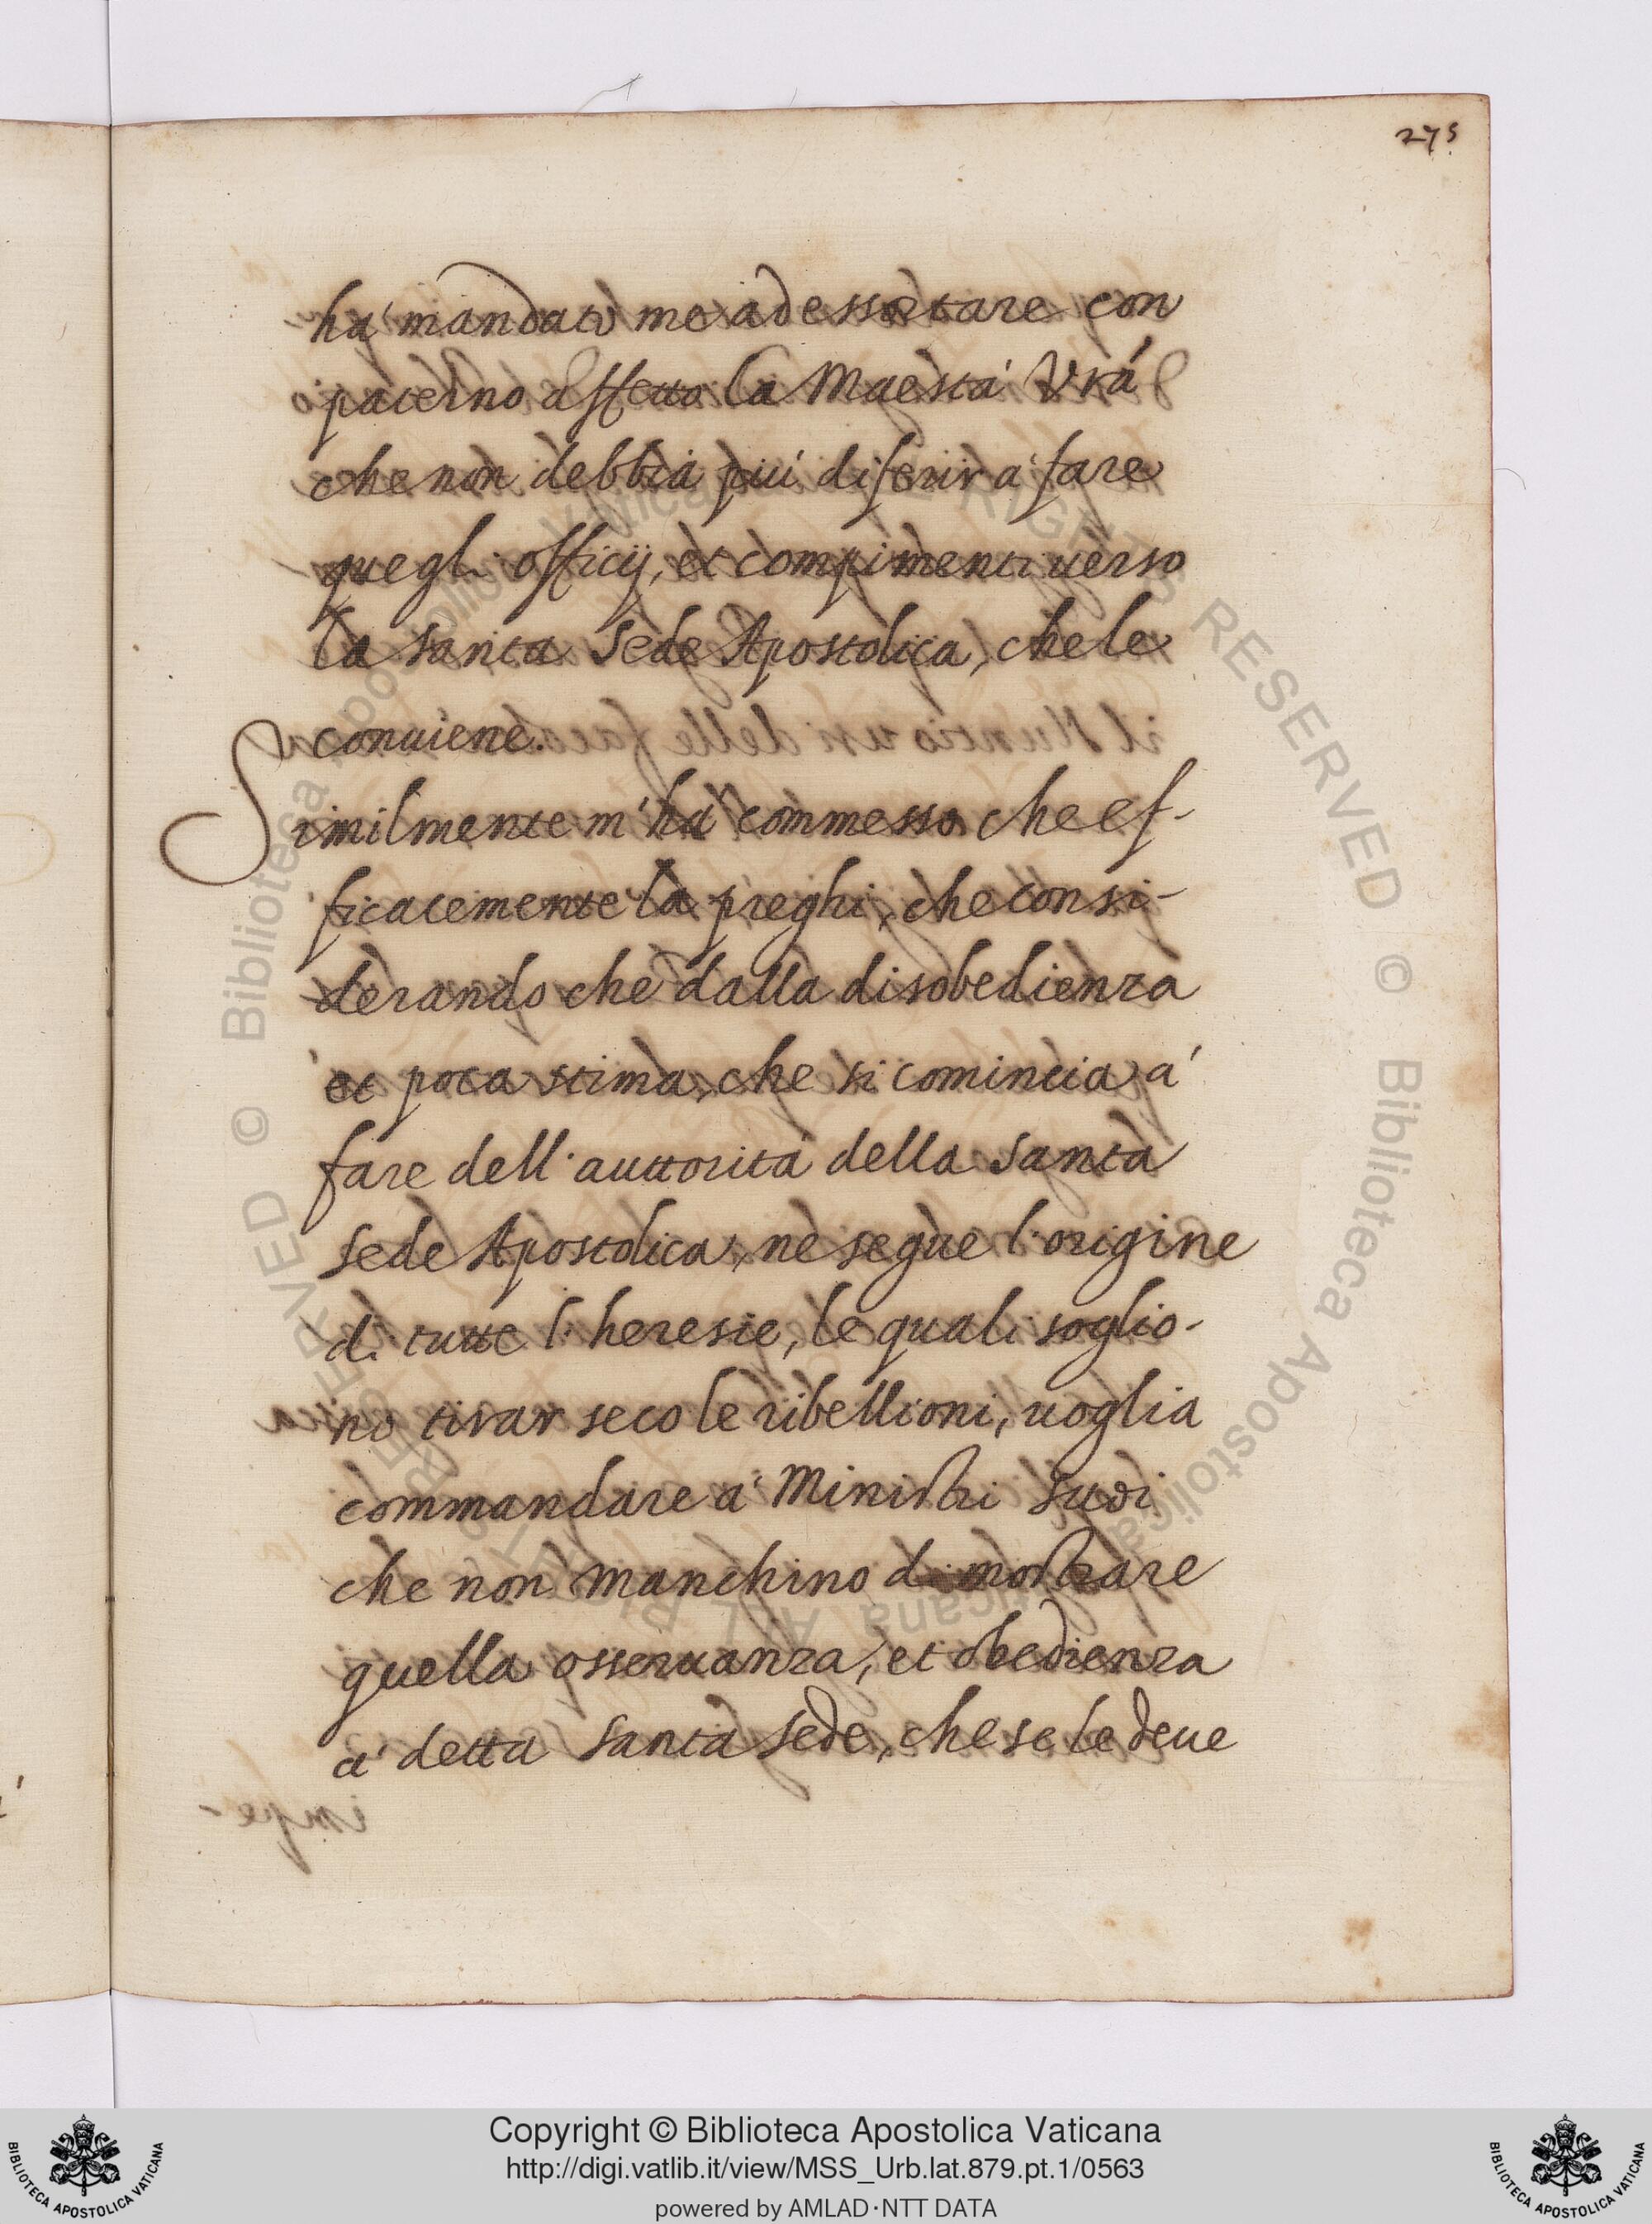 275
hà mandato me ad essortare con
paterno affetto la Maestà Vrá
che non debbia più diferir à fare
quegli officij, et compimenti uerso
la santa Sede Apostolica, che le
conuiene.
Similmente m'hà commesso che ef-
ficacemente la preghi, che consi-
derando che dalla disobedienza
et poca stima, che si comincia à
fare dell'auttorità della santa
sede Apostolica, ne segue l'origine
di tutte l'heresie, le quali soglio-
no tirar seco le ribellioni, uoglia
commandare à Ministri suoi
che non manchino di mostrare
quella osseruanza, et obedienza
à detta santa sede, che se le deue
© Biblioteca Apostolica Vaticana ALL RIGHTS RESERVED
Copyright © Biblioteca Apostolica Vaticana
http://digi.vatlib.it/view/MSS_Urb.lat.879.pt.1/0563
powered by AMLAD·NTT DATA
BIBLIOTECA APOSTOLICA VATICANA
BIBLIOTECA APOSTOLICA VATICANA